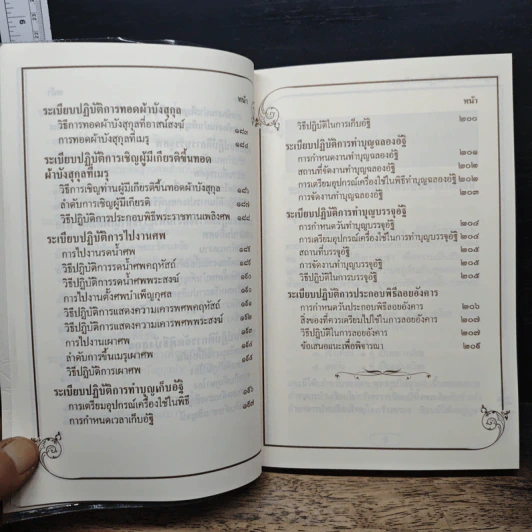 หน้า
ระเบียบปฏิบัติการทอดผ้าบังสุกุล
วิธีการทอดผ้าบังสุกุลที่อาสน์สงฆ์ ๑๘๓
การทอดผ้าบังสุกุลที่เมรุ ๑๘๔
ระเบียบปฏิบัติการเชิญผู้มีเกียรติขึ้นทอด
ผ้าบังสุกุลที่เมรุ
วิธีการเชิญท่านผู้มีเกียรติขึ้นทอดผ้าบังสุกุล
ลำดับการเชิญผู้มีเกียรติ
วิธีปฏิบัติการประกอบพิธีพระราชทานเพลิงศพ
ระเบียบปฏิบัติการไปงานศพ
การไปงานรดน้ำศพ
วิธีปฏิบัติการรดน้ำศพคฤหัสถ์
วิธีปฏิบัติการรดน้ำศพพระสงฆ์
การไปงานตั้งศพบำเพ็ญกุศล
วิธีปฏิบัติการแสดงความเคารพศพคฤหัสถ์
วิธีปฏิบัติการแสดงความเคารพศพพระสงฆ์
การไปงานเผาศพ
ลำดับการขึ้นเมรุเผาศพ
วิธีปฏิบัติการเผาศพ
ระเบียบปฏิบัติการทำบุญเก็บอัฐิ
การเตรียมอุปกรณ์เครื่องใช้ในพิธี ๑๙๖
การกำหนดเวลาเก็บอัฐิ ๑๙๗
หน้า
วิธีปฏิบัติในการเก็บอัฐิ ๒๐๐
ระเบียบปฏิบัติการทำบุญฉลองอัฐิ
การกำหนดงานทำบุญฉลองอัฐิ ๒๐๑
สถานที่จัดงานทำบุญฉลองอัฐิ ๒๐๒
การเตรียมอุปกรณ์เครื่องใช้ในพิธีทำบุญฉลองอัฐิ ๒๐๒
การจัดงานทำบุญฉลองอัฐิ ๒๐๓
ระเบียบปฏิบัติการทำบุญบรรจุอัฐิ
การกำหนดวันทำบุญบรรจุอัฐิ ๒๐๔
การเตรียมอุปกรณ์เครื่องใช้ในการทำบุญบรรจุอัฐิ ๒๐๔
สถานที่บรรจุอัฐิ ๒๐๕
การจัดงานทำบุญบรรจุอัฐิ ๒๐๕
วิธีปฏิบัติในการบรรจุอัฐิ ๒๐๕
ระเบียบปฏิบัติการประกอบพิธีลอยอังคาร
การกำหนดวันประกอบพิธีลอยอังคาร ๒๐๖
สิ่งของที่ควรเตรียมไปใช้ในการลอยอังคาร ๒๐๗
วิธีปฏิบัติในการลอยอังคาร ๒๐๗
ข้อเสนอแนะเพื่อพิจารณา ๒๐๙